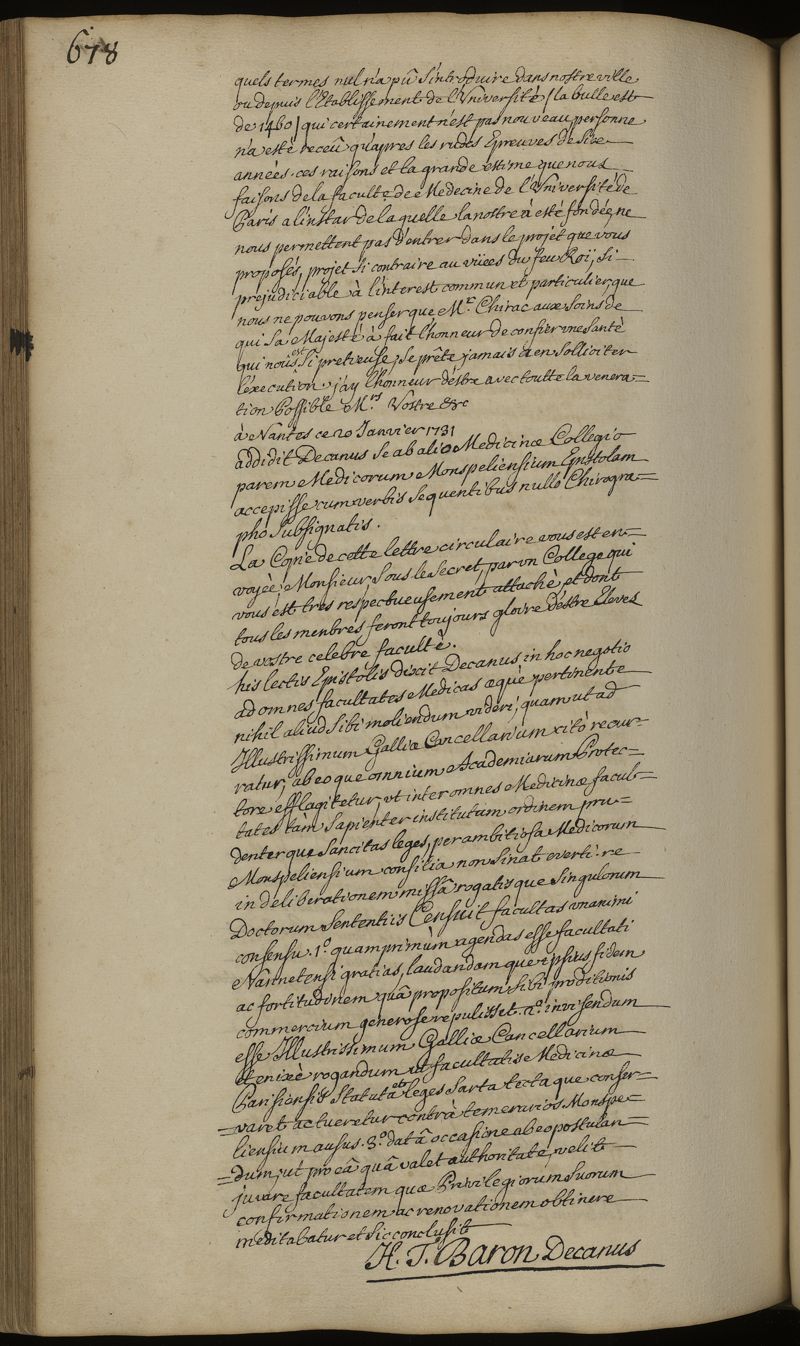 678
quels termes nul n'a pû s'introduire dans nostre ville
ou depuis l'Etablissement de l'Université /la bulle est
de 1460/ qui certainement n'est pas nouveau, personne
n'a esté receû qu'apres les rudes Epreuves de Six
années. ces raisons et la grande estime que nous
faisons de la faculté de Medecine de l'Université de
Paris a l'instar de la quelle la nostre à esté fondée ne
nous permettent pas d'entrer dans le projet que vous
proposés, projet si contraire au viiees du feu Roÿ, si
prejudiciable à l'interest commun et particulier, que
nous ne pouvons penser que Mr. Chirac aux soins de
qui Sa Majesté à fait l'honneur de confier une santé
qui nous est si pretieuse, se prête jamais à en solliciter
l'execution. j'ay l'honneur déstre avec toutte la venera=
tion Possible Mrs. Vostre &c
à Nantes ce 20 Janvier 1731
addidit Decanus se ab alio Medicinæ Collegio
parem Medicorum Monspeliensium Epistolam
accepisse cum verbis sequentibus nullo Chirogra=
pho subsignatis.
La Copie de cette lettre circulaire vous est en=
voyée, Monsieur sous le secret, par un College qui
vous est tres respectueusement attaché, et dont
tous les menbres feront toujours gloire d'éstre Eleves
de vostre celebre faculté.
his lectis Epistolis dixit Decanus in hoc negotio
ad omnes facultates Medicas æquè pertinente
nihil aliud sibi moliendum videri, quam ut ad
Illustrissimum Galliæ Cancellarium citò recur=
ratur, ab eoque omnium Academiarum Protec=
tore efflagitetur, ut inter omnes Medicinæ facul=
tates tàm sapienter institutum ordinem pru=
denterque sancitas leges, per ambitiosa Medicorum
Monspeliensium consilia non sinat everti. re
in deliberationem missâ rogatisque singulorum
Doctorum sententiis Censuit facultas unanimi
consensu. 1º. quamprimùm agendas esse facultati
Nannetensi gratias, laudandamque ipsius fidem
ac fortitudinem quâ propositum sibi proditionis
commercium generose repulisset. 2º. invisendum
esse Illustrissimum Galliæ Cancellarium
et enixè rogandum ut facultatis Medicinæ
Parisiensis Statuta et leges sarta tecta que conser=
=varet ac tueretur contrà temerarios Monspe=
liensium ausus. 3º. datâ occasione ab eo postulan=
=dum, ut pro eâ quâ valet authoritate, velit
juvare facultatem quæ Privilegiorum suorum
confirmationem ac renovationem obtinere
meditabatur et sic conclusit
H. T. Baron Decanus